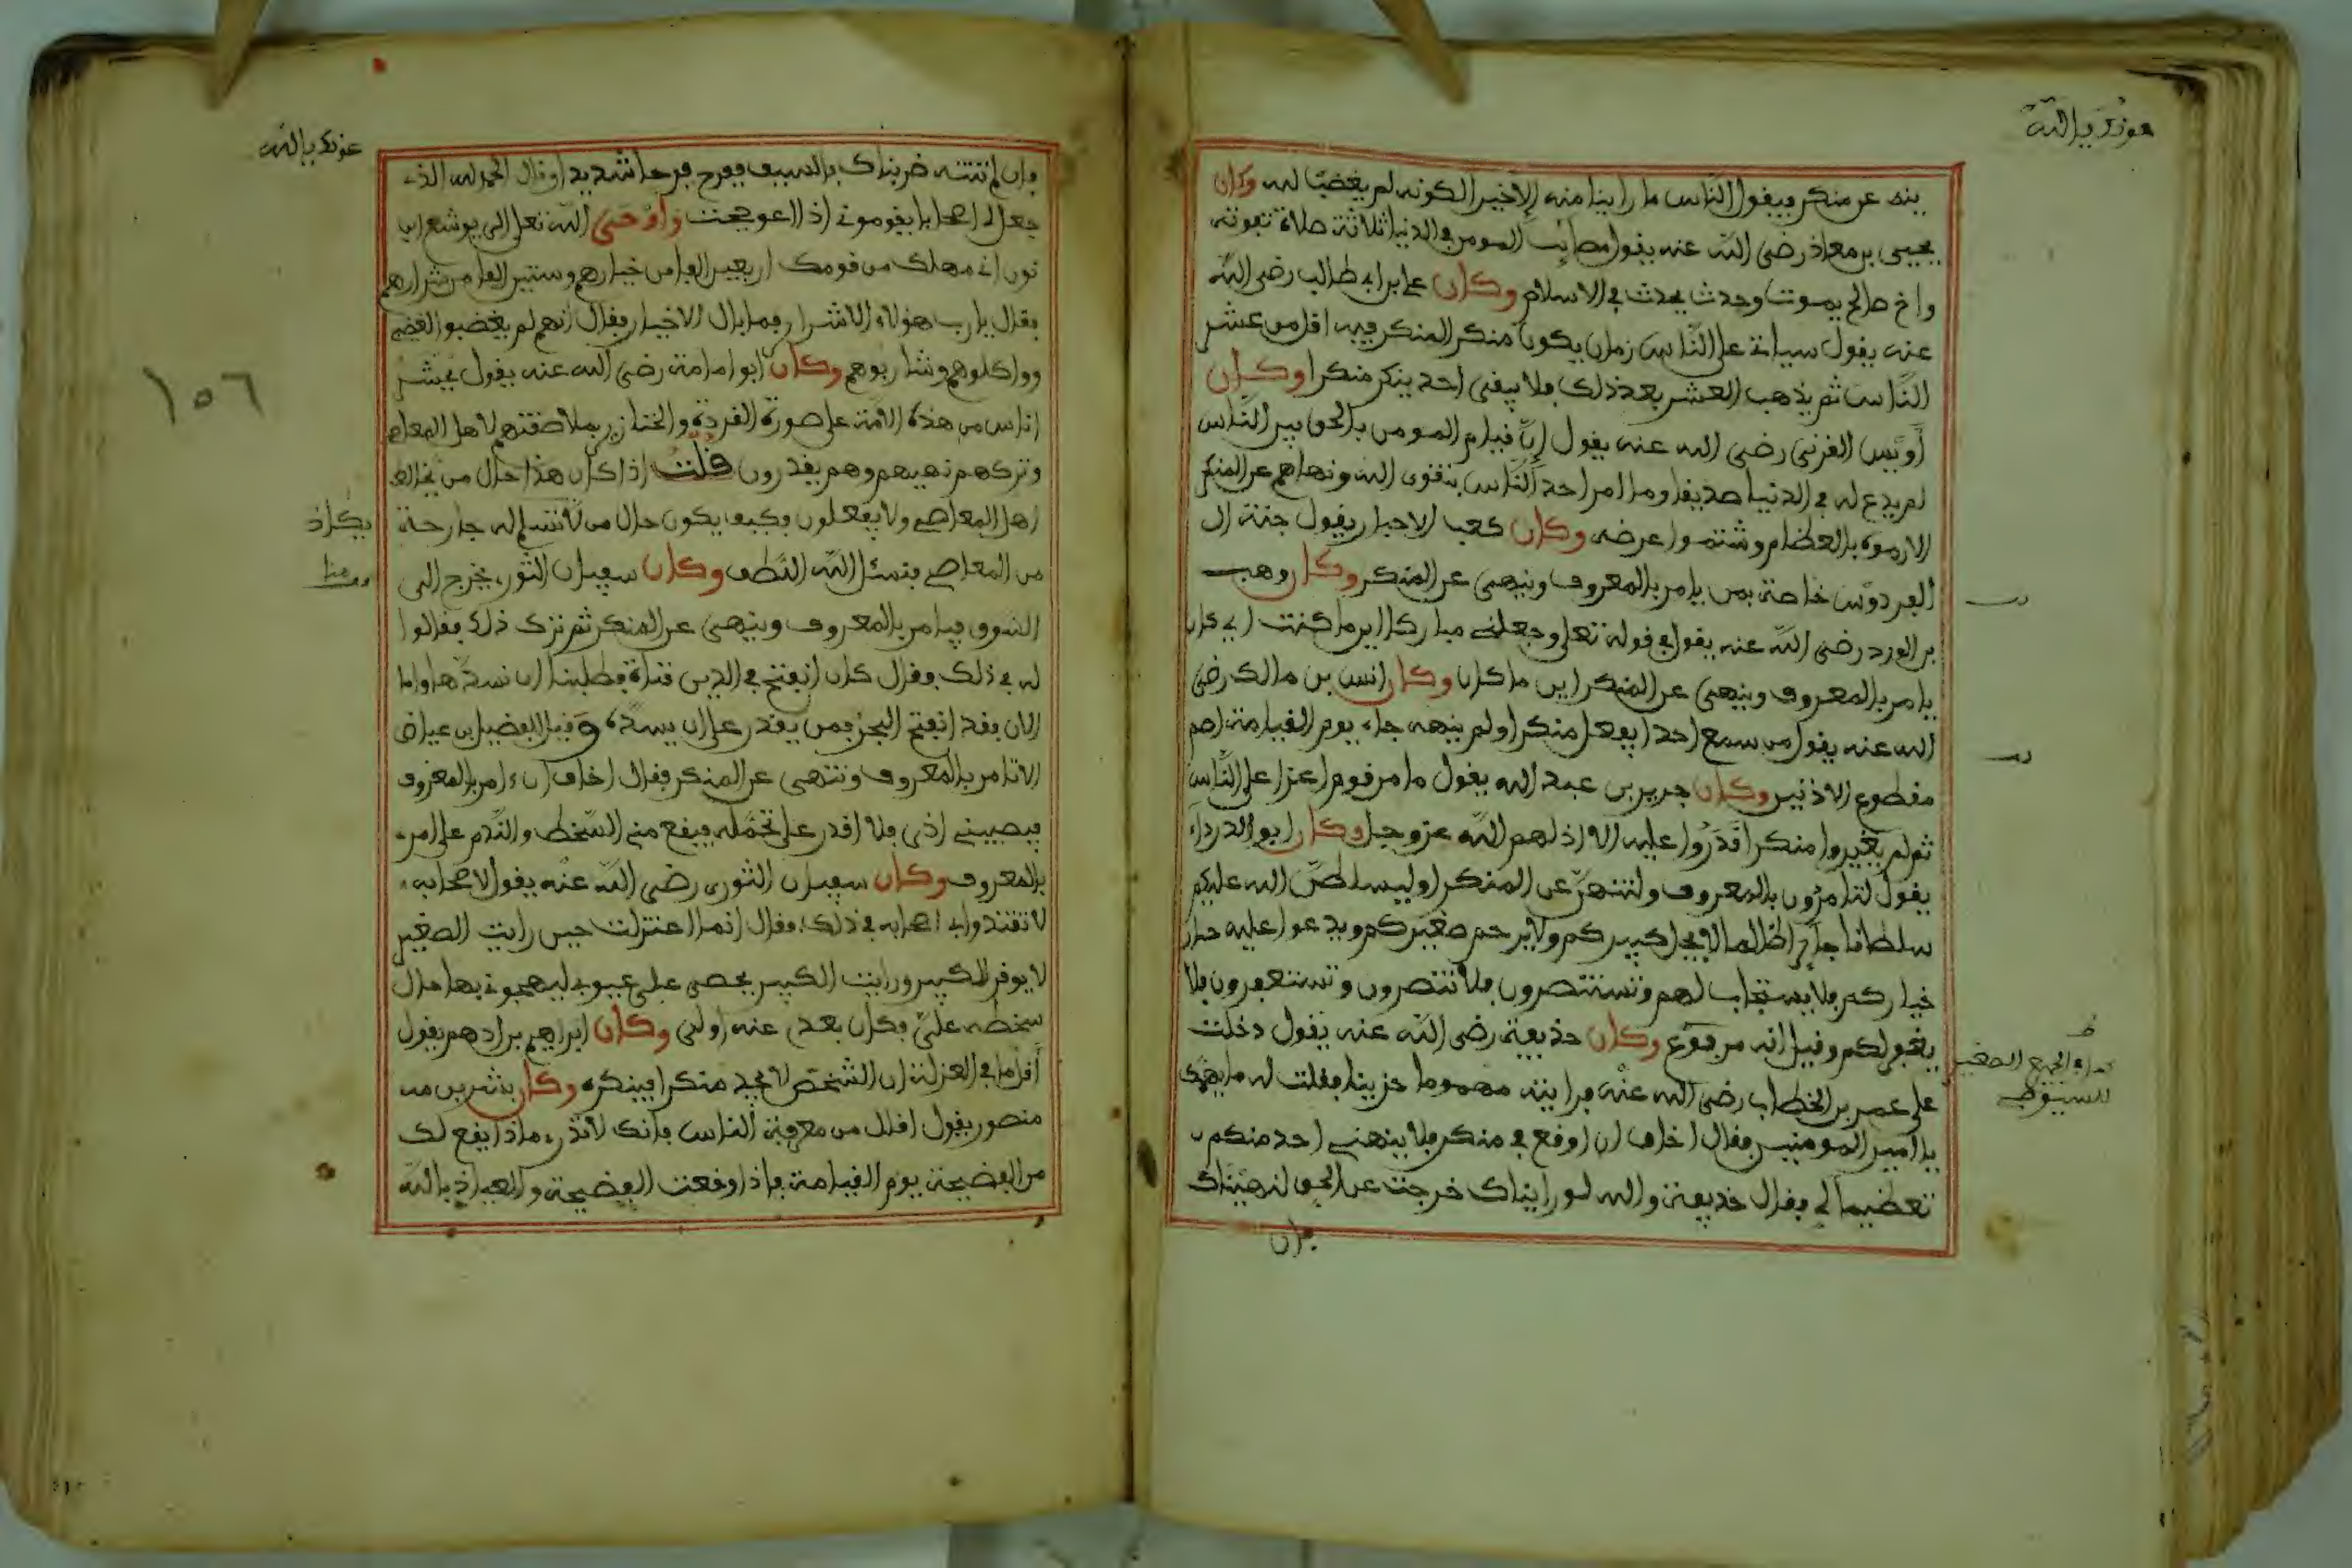 عونک یا الله
ينه عن منكر فيقول الناس ما راينا منه الا خيرا لكونه لم يغضب لله وكان
يحيى بن معاذ رضي الله عنه يقول مصائب المومن في الدنيا ثلاثة صلاة تفوته
واخ صالح يموت وحدث يحدث في الاسلام وكان علي بن ابي طالب رضي الله
عنه يقول سياتي على الناس زمان يكون منكر المنكر فيه اقل من عشر
الناس ثم يذهب العشر بعد ذلك فلا يبقى احد ينكر منكرا وكان
أويس القرني رضي الله عنه يقول إن قيام المومن بالحق بين الناس
لم يدع له في الدنيا صديقا وما امر احد الناس بتقوى الله ونهاهم عن المنكر
الا رموه بالعظائم وشتموا عرضه وكان كعب الاحبار يقول جنة ال
الفردوس خاصة بمن يامر بالمعروف وينهى عن المنكر وكان وهب
بن الورد رضي الله عنه يقول في قوله تعلى وجعلني مباركا اين ما كنت اي كان
يامر بالمعروف وينهى عن المنكر اين ما كان وكان انس بن مالك رضي
الله عنه يقول من سمع احدا يفعل منكرا ولم ينهه جاء يوم القيامة اصم
مقطوع الاذنين وكان جرير بن عبد الله يقول ما من قوم اعزا على الناس
ثم لم يغيروا منكرا قدروا عليه الا اذلهم الله عز وجل وكان ابو الدرداء
يقول لتامرون بالمعروف ولتنتهن عن المنكر او ليسلطن الله عليكم
سلطانا جائرا ظالما لا يجل كبيركم ولا يرحم صغيركم ويدعوا عليه خيار
خياركم فلا يستجاب لهم وتستنصرون فلا تنصرون وتستغفرون فلا
يغفر لكم وقيل انه مرفوع وكان حذيفة رضي الله عنه يقول دخلت
على عمر بن الخطاب رضي الله عنه فرايته مهموما حزينا فقلت له ما يهمك
يا امير المومنين فقال اخاف ان اوقع في منكر فلا ينهني احد منكم
تعظيما لي فقال حذيفة والله لو رايناك خرجت عن الحق لنهيناك
فان
الجمع الصغير
للسيوطي
عونک یا الله
فان لم تنته ضربناك بالسيف ففرح فرحا شديدا وقال الحمد لله الذي
جعل لي اصحابا يقوموني اذا اعوججت واوحى الله تعلى الى يوشع ابن
نون اني مهلك من قومك اربعين الفا من خيارهم وستين الفا من شرارهم
فقال يا رب هؤلاء الاشرار فما بال الاخيار فقال انهم لم يغضبوا لغضبي
وواكلوهم وشاربوهم وكان ابو امامة رضي الله عنه يقول يحشر
اناس من هذه الامة على صورة القردة والخنازير بملاصقتهم لاهل المعاصي
وتركهم نهيهم وهم يقدرون قلت اذا كان هذا حال من يخالط
اهل المعاصي ولا يفعلون فكيف يكون حال من لا تسلم له جارحة
من المعاصي فنسئل الله اللطف وكان سفيان الثوري يخرج الى
السوق فيامر بالمعروف وينهى عن المنكر ثم ترك ذلك فقالوا
له في ذلك فقال كان انفتح في الدين قناة فطلبنا ان نسدها واما
الان فقد انفتح البحر فمن يقدر على ان يسده وقيل للفضيل بن عياض
الا تامر بالمعروف وتنهى عن المنكر فقال اخاف ان ءامر بالمعروف
فيصيبني اذى فلا اقدر على تحمله فيقع مني السخط والندم على امري
بالمعروف وكان سفيان الثوري رضي الله عنه يقول لاصحابه
لا تقتدوا بي اصحابه في ذلك فقال انما اعتزلت حين رايت الصغير
لا يوقر الكبير ورايت الكبير يحصي علي عيوبي ليهجوني بها حال
سخطه علي فكان بعدي عنه اولى وكان ابراهيم بن ادهم يقول
أقل ما في العزلة ان الشخص لا يجد منكرا فينكره وكان بشر بن
منصور يقول اقلل من معرفة الناس فانك لا تدري ماذا يقع لك
من الفضيحة يوم القيامة فاذا وقعت الفضيحة والعياذ بالله
١٥٦